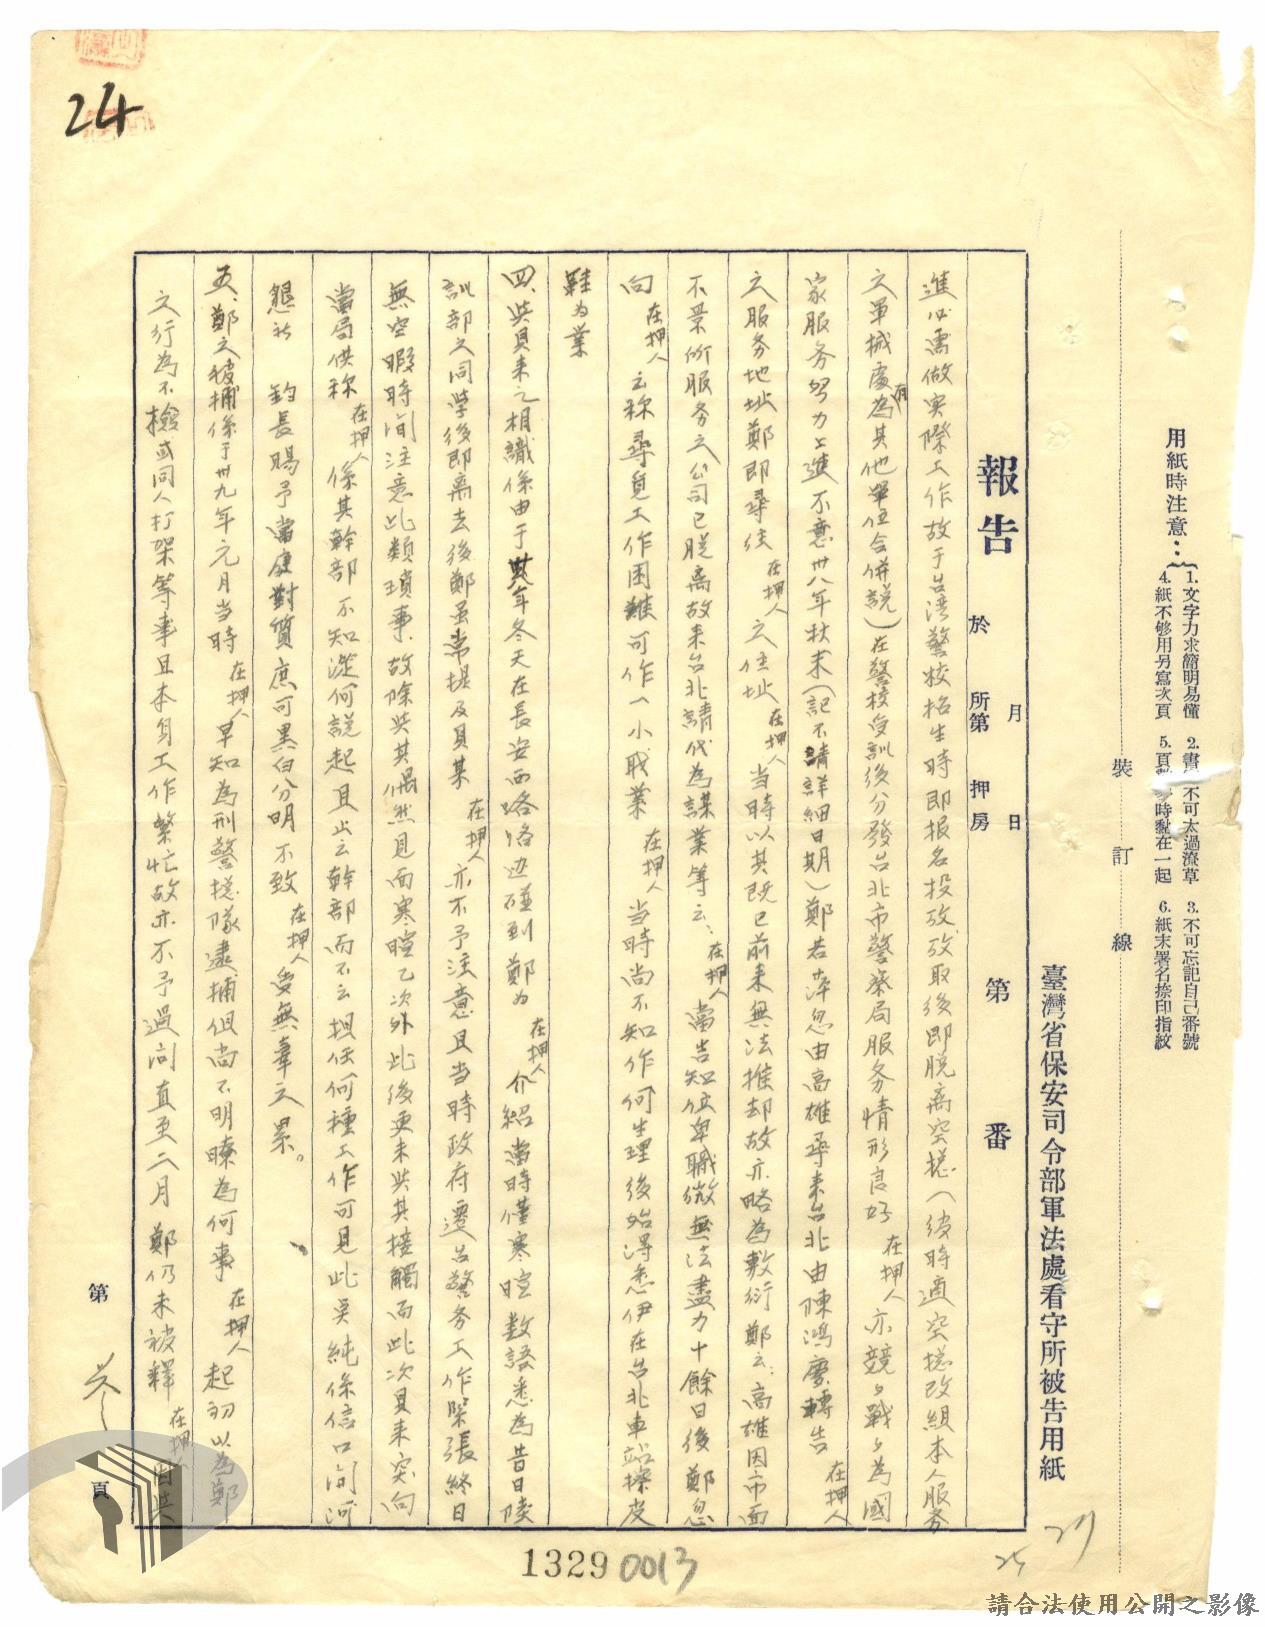 24
用紙時注意：
1.文字力求簡明易懂 2.書 不可太過潦草 3.不可忘記自己番號
4.紙不够用另寫次頁 5.頁 多時黏在一起 6.紙末署名捺印指紋
裝 訂 線
臺灣省保安司令部軍法處看守所被告用紙
報告 於 所第 押房 月 日 第 番
進必需做实際工作故于台湾警校招生時即报名投攷攷取後即脱离空總（彼時適空總改組本人服务
之軍械處為有其他單位合併說）在警校受訓後分發台北市警察局服务情形良好在押人亦兢々戰々為國
家服务努力上進不意卅八年秋末（記不請詳細日期）鄭若萍忽由高雄尋来台北由陳鴻慶轉告在押人
之服务地址鄭即尋往在押人之住址在押人当時以其既已前来無法推却故亦略為敷衍鄭云：高雄因市面
不景所服务之公司已脱离故来台北請代為謀業等云：在押人當告知位卑職微無法盡力十餘日後鄭忽
向在押人云称尋覓工作困難可作一小職業在押人当時尚不知作何生理後始得悉伊在台北車站擦皮
鞋为業
四、與員来之相識係由于卅八年冬天在長安西路路边碰到鄭为在押人介紹當時僅寒暄数語悉為昔日陵
訓部之同学後即离去後鄭虽常提及員某在押人亦不予注意且当時政府遷台警务工作緊張終日
無空暇時间注意此類瑣事故除與其偶然見面寒暄乙次外此後更未與其接觸而此次員来突向
當局供称在押人係其幹部不知從何說起且止云幹部而不云担任何種工作可見此吴純係信口開河
懇祈 鈞長賜予當庭對質庶可黑白分明不致在押人受無辜之累。
五、鄭之被捕係于卅九年元月当時在押人早知為刑警總隊逮捕但尚不明瞭為何事在押人起初以為鄭
之行為不檢或同人打架等事且本身工作繁忙故亦不予過问直至二月鄭仍未被釋在押人因與
第 頁
1329 0013
27
25
請合法使用公開之影像